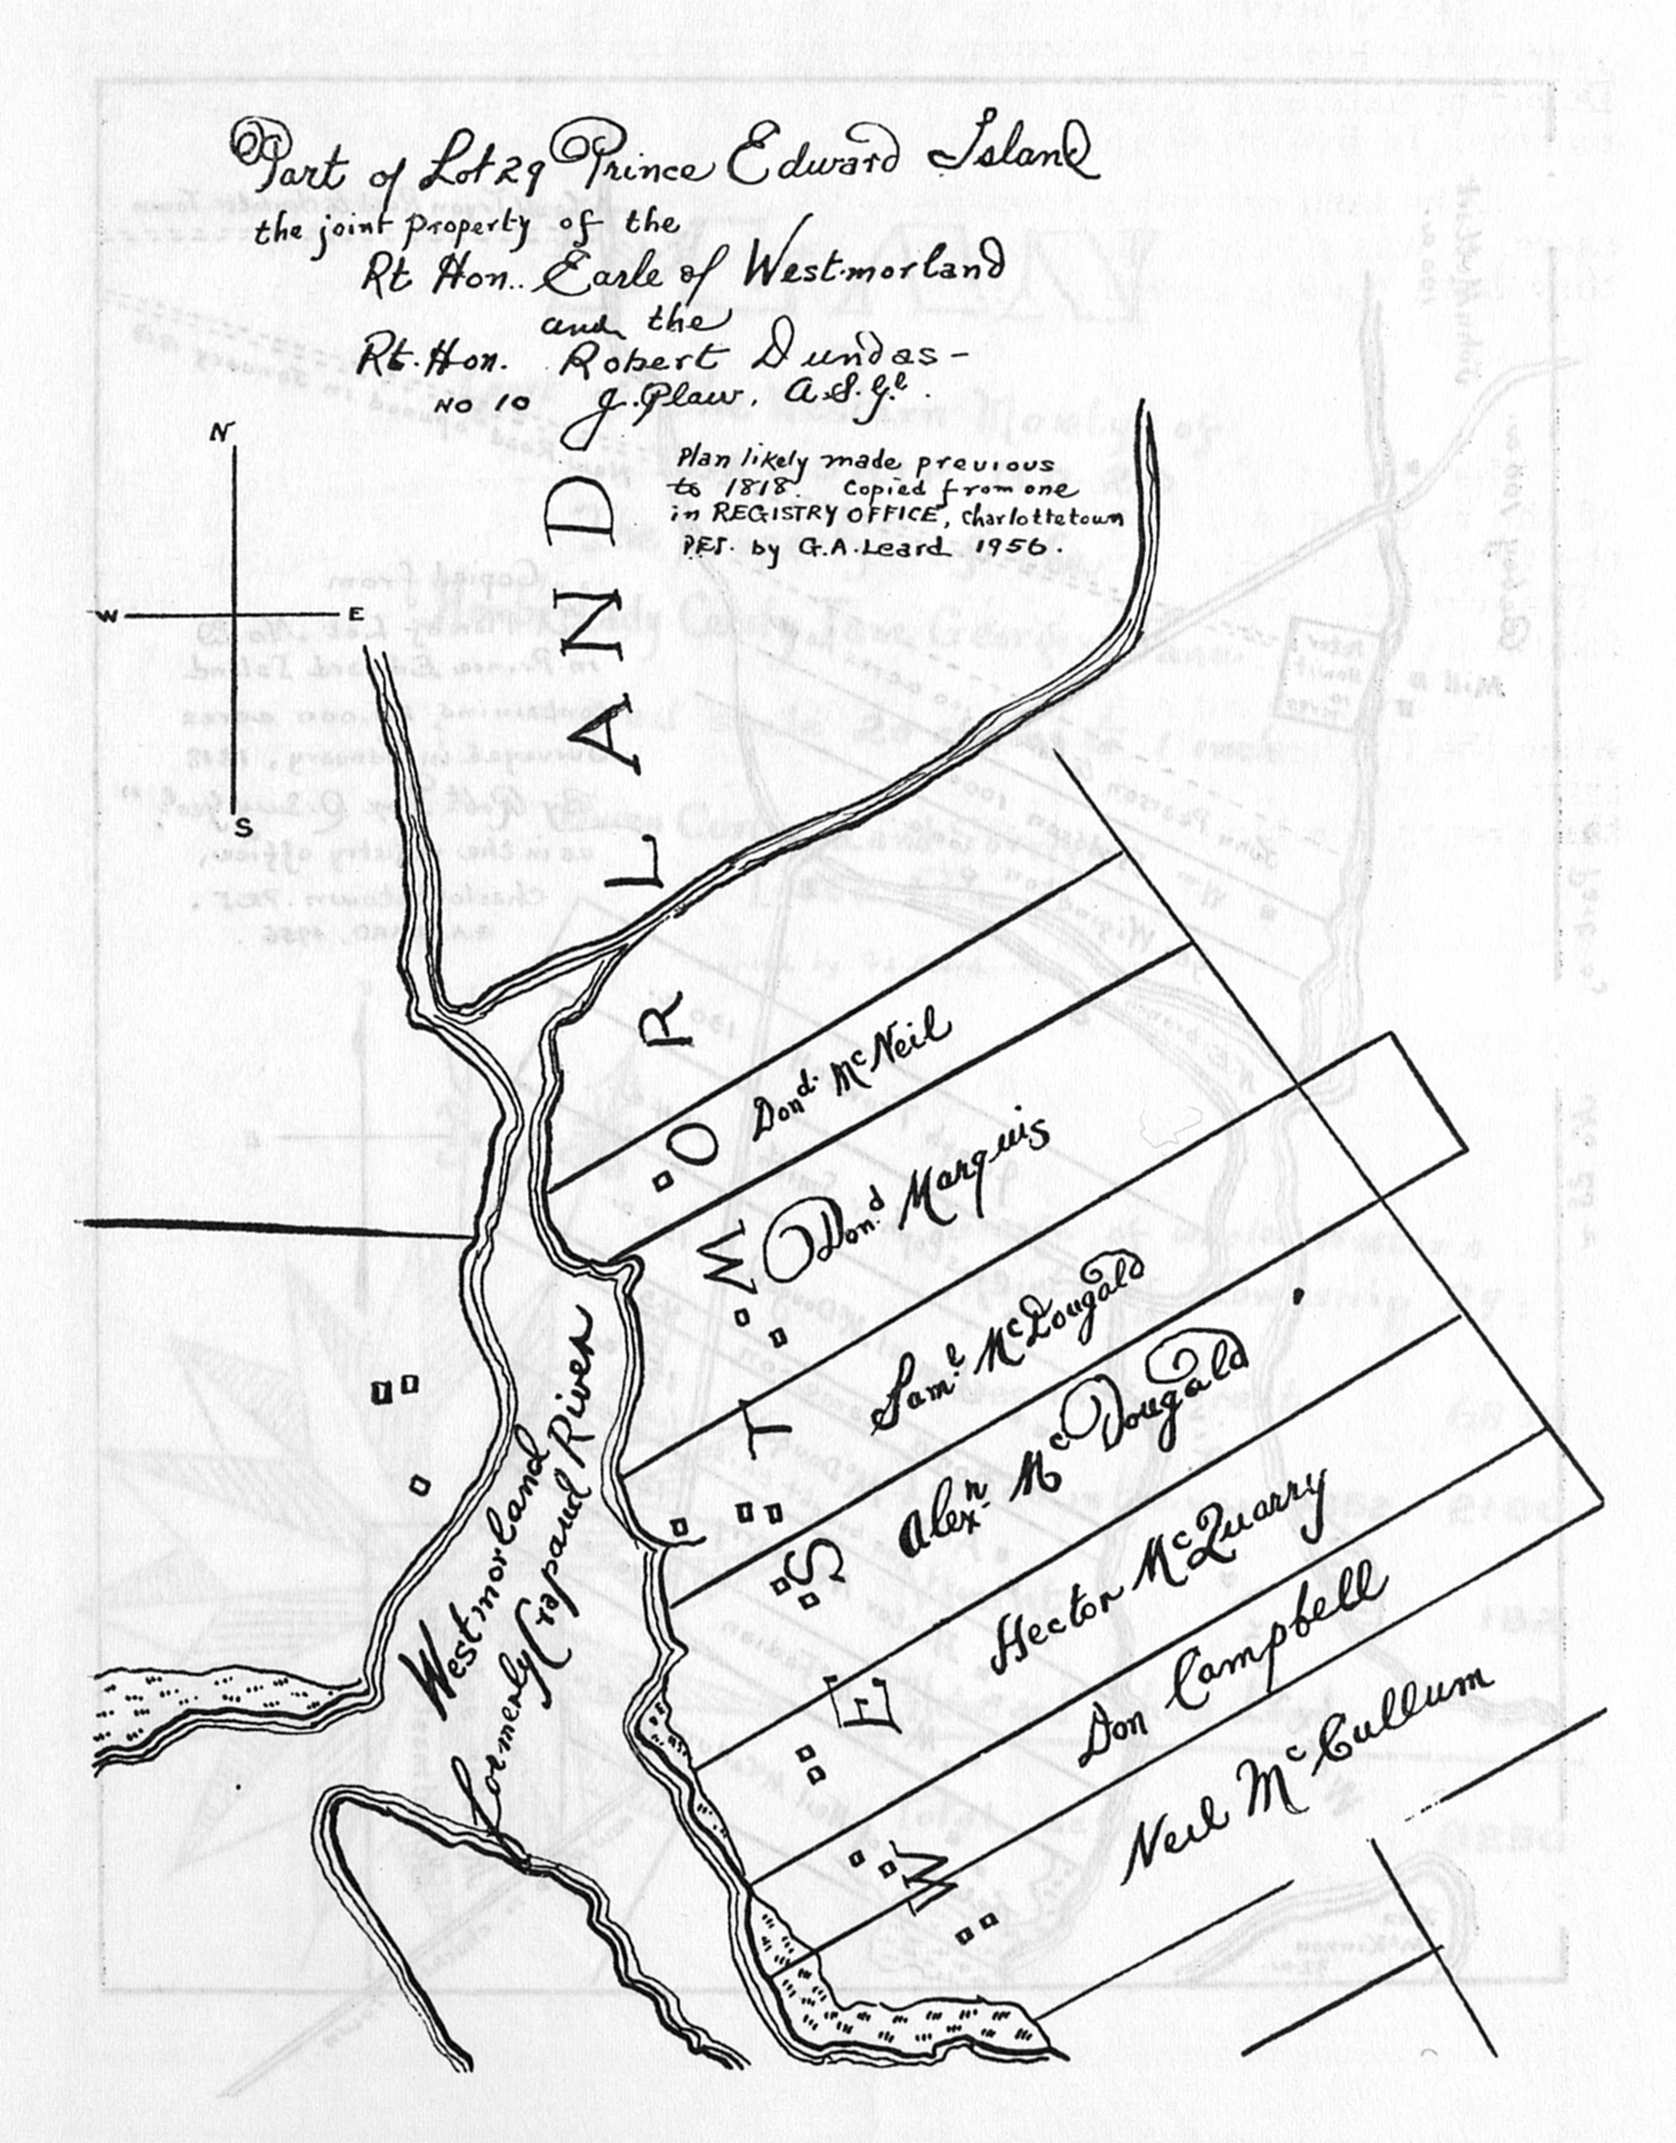 Part of Lot 29 Prince Edward Island
the joint property of the
Rt Hon.. Earle of Westmorland
and the
Rt. Hon. Robert Dundas -
No 10 J. Plaw, A.S.Gl.
Plan likely made previous
to 1818. Copied from one
in REGISTRY OFFICE, Charlottetown
PEI. by G.A. Leard 1956.
N
W E
S
WESTMORLAND
Dond. McNeil
Dond. Marquis
Saml. McDougald
Alexn. McDougald
Hector McQuarry
Don Campbell
Neil McCullum
Westmorland
formerly Crapaud River